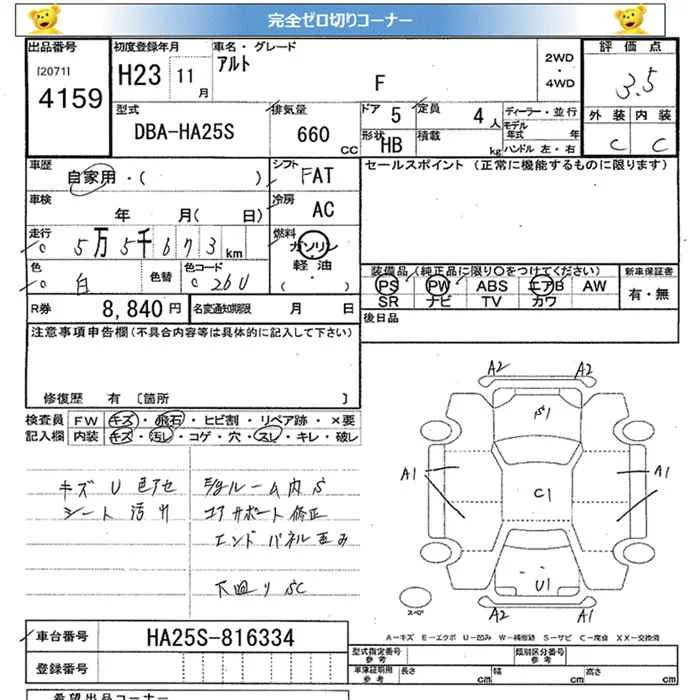 完全ゼロ切りコーナー
出品番号 初度登録年月 車名・グレード 評価点
[2071] H23 11月 アルト 2WD・4WD 3.5
4159 F
外装 内装
型式 排気量 ドア 5 定員 4人 ディーラー・並行 C C
DBA-HA25S 660cc モデル年式 年
形状 HB 積載 kg ハンドル 左・右
車歴 シフト セールスポイント (正常に機能するものに限ります)
自家用・( ) FAT
車検 冷房
年 月( 日) AC
走行 燃料
5万5千673km ガソリン
軽油
色 色替 色コード ( ) 装備品 (純正品に限り○をつけてください) 新車保証書
白 26U PS PW ABS エアB AW 有・無
SR ナビ TV カワ
R券 8,840円 名変通知期限 月 日 後日品
注意事項申告欄 (不具合内容等は具体的に記入して下さい)
修復歴 有 [箇所 ]
検査員 FW キズ・飛石・ヒビ割・リペア跡・×要
記入欄 内装 キズ・汚し・コゲ・穴・スレ・キレ・破レ
キズ U 色アセ E/gルーム内 S
シート 汚れ コアサポート 修正
エンドパネル 歪み
下廻り SC
A2 A2
S1
A1 C1 A1
U1
スペア A2 A1
A-キズ E-エクボ U-凹み W-補修跡 S-サビ C-腐食 XX-交換済
車台番号 HA25S-816334
型式指定番号 参考 類別区分番号 参考
登録番号 車庫証明用 参考 長さ cm 幅 cm 高さ cm
希望出品コーナー